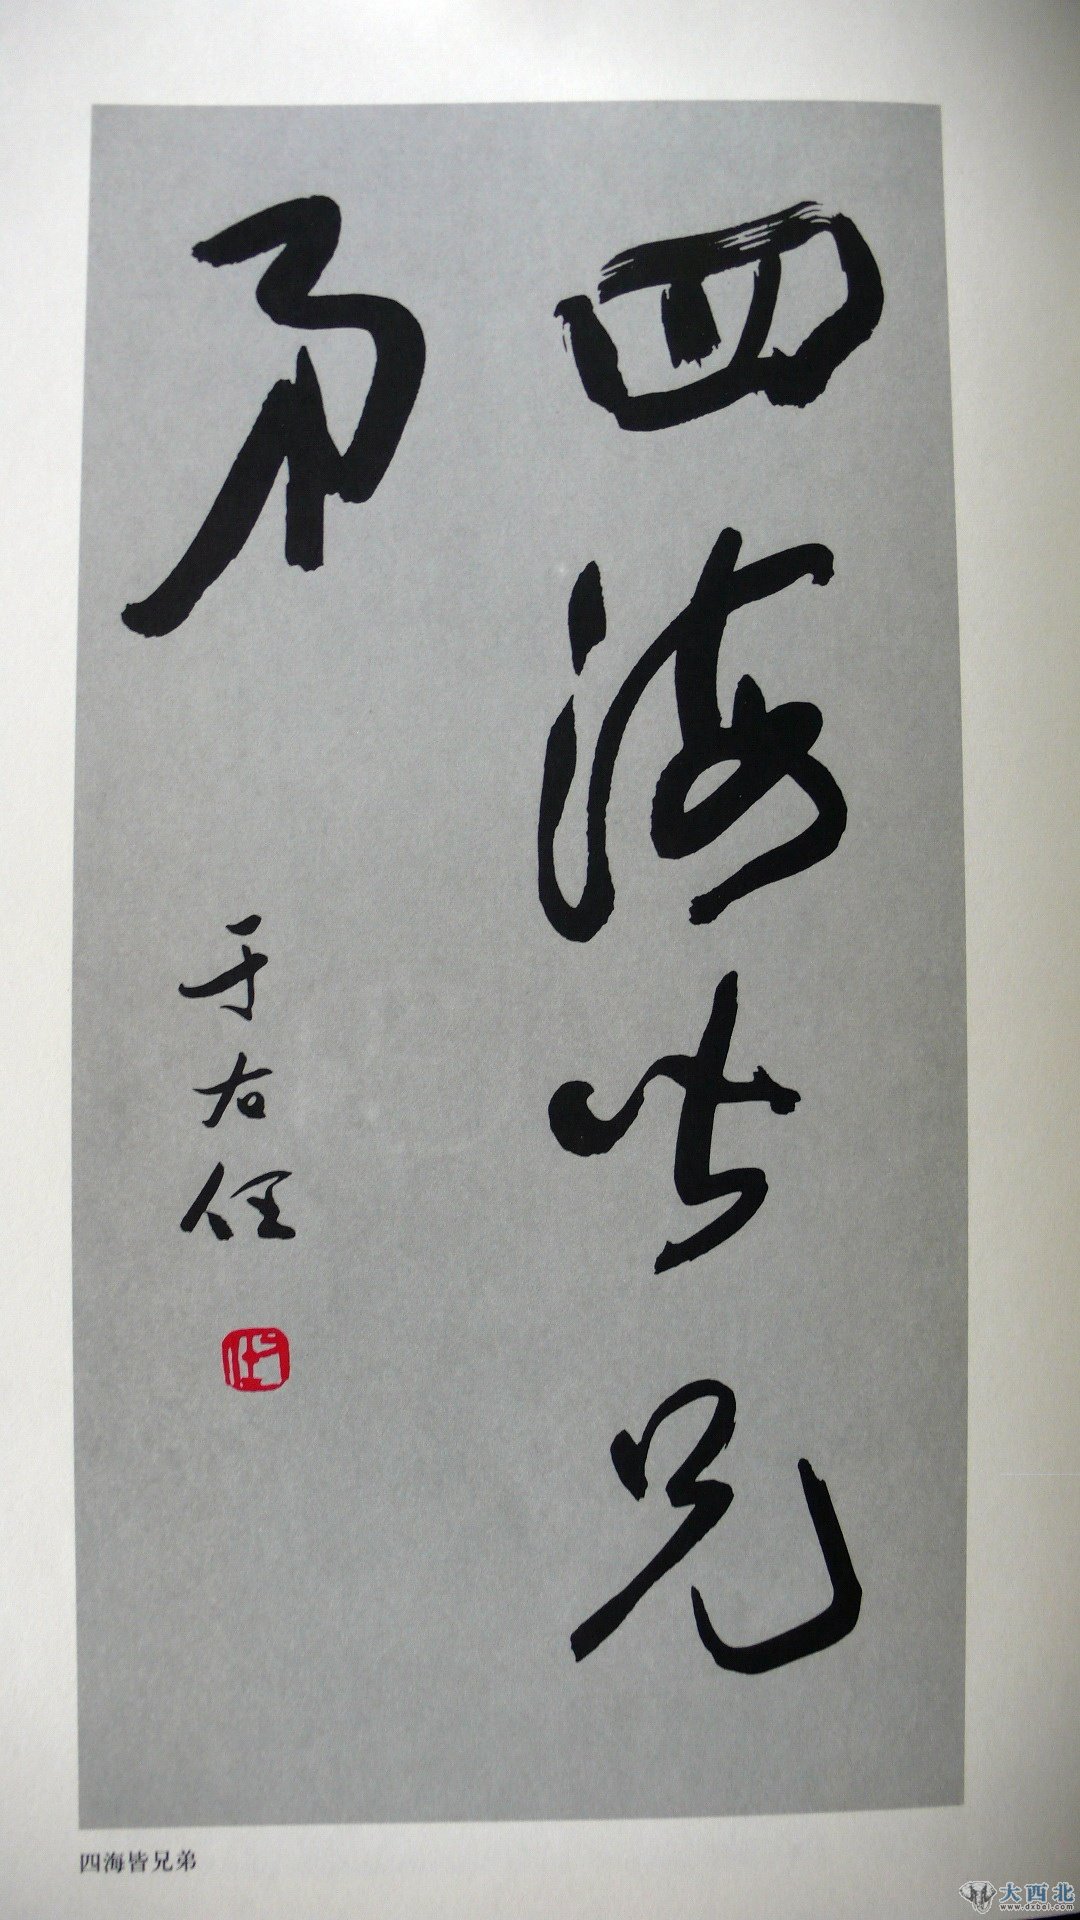 四海皆兄
弟
于右任
四海皆兄弟
大西北
www.dxbei.com